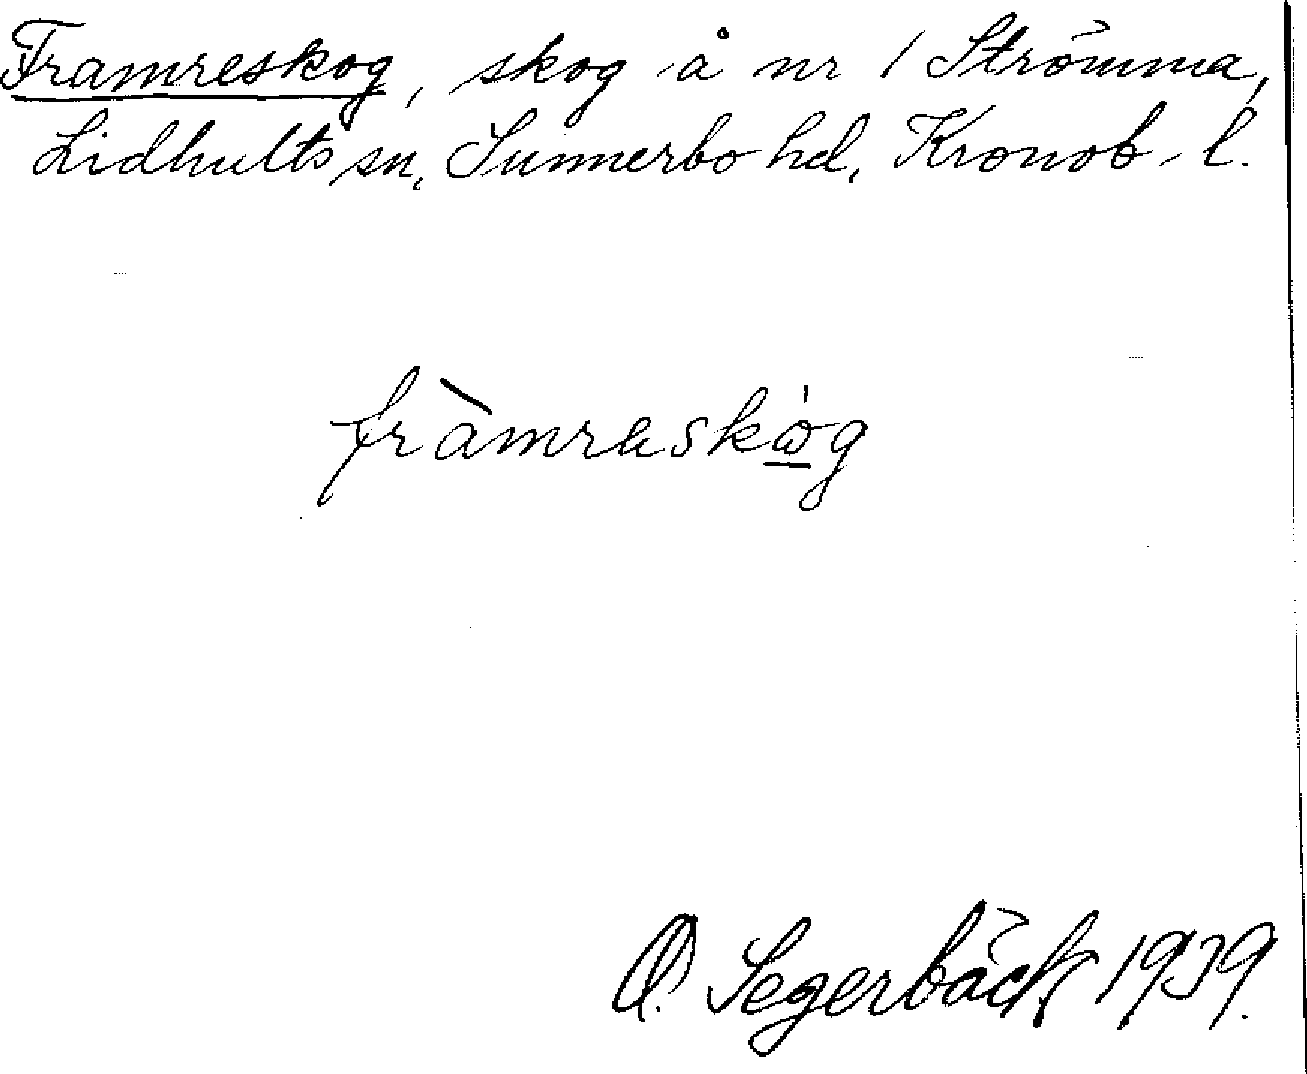 Framreskog, skog å nr 1 Strömma,
Lidhults sn, Sunnerbo hd, Kronob. l.
fràmraskó̲g
O. Segerbäck 1939.